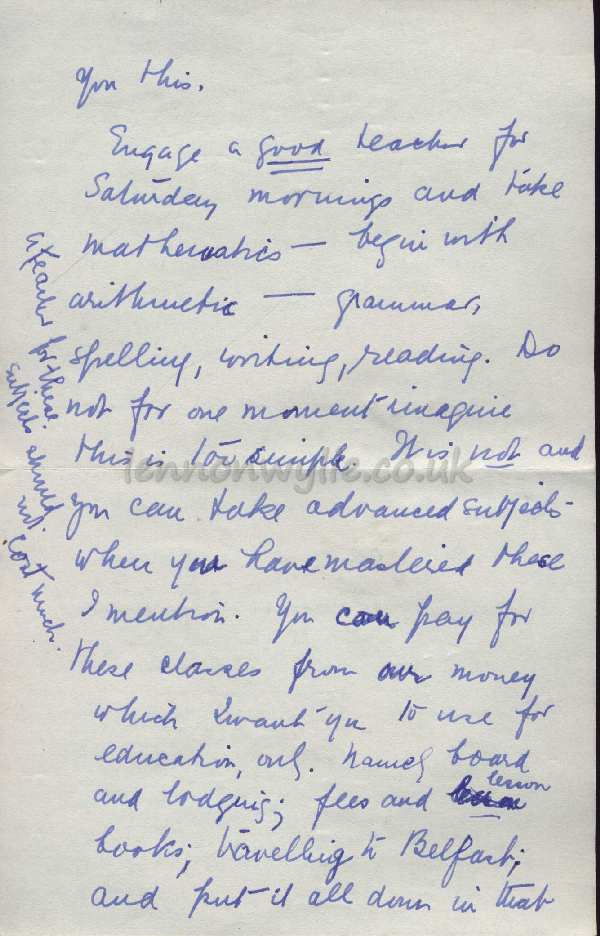 you this.
Engage a good teacher for
Saturday mornings and take
mathematics — begin with
arithmetic — grammar,
spelling, writing, reading. Do
not for one moment imagine
this is too simple. It is not and
you can take advanced subjects
when you have mastered these
I mention. You can pay for
these classes from our money
which I want you to use for
education, only. Namely board
and lodging; fees and lesson
books; travelling to Belfast;
and put it all down in that
a teacher for these
subjects should
not cost much.
lennonwylie.co.uk